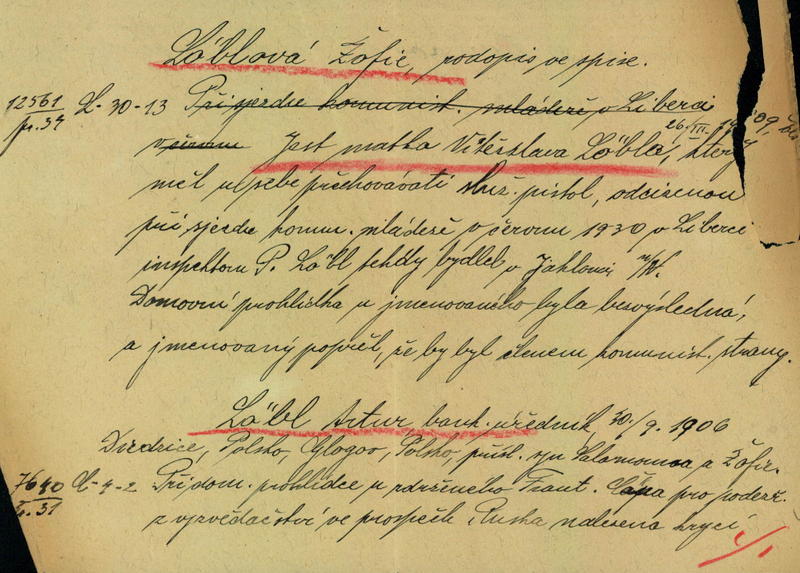 Löblová Žofie, podopis ve spise.
12561/pr.34 L-30-13 Při sjezdu komunist. mládeže v Liberci
v červnu Jest matka Vítězslava Löbla, 26./III. 1909, který
měl u sebe přechovávati služ. pistol, odcizenou
při sjezdu komun. mládeže v červnu 1930 v Liberci
inspektoru P. Löbl tehdy bydlel v Jablonci n/N.
Domovní prohlídka u jmenovaného byla bezvýsledná,
a jmenovaný popřel, že by byl členem komunist. strany.
Löbl Artur, bank. úředník, 30./9. 1906
Dziedzice, Polsko, Glogov, Polsko, přísl. syn Salamouna a Žofie.
7640/pr.31 L-4-2 Při dom. prohlídce u zdrženého Frant. pro podezř.
z vyzvědačství ve prospěch Ruska nalezena krycí